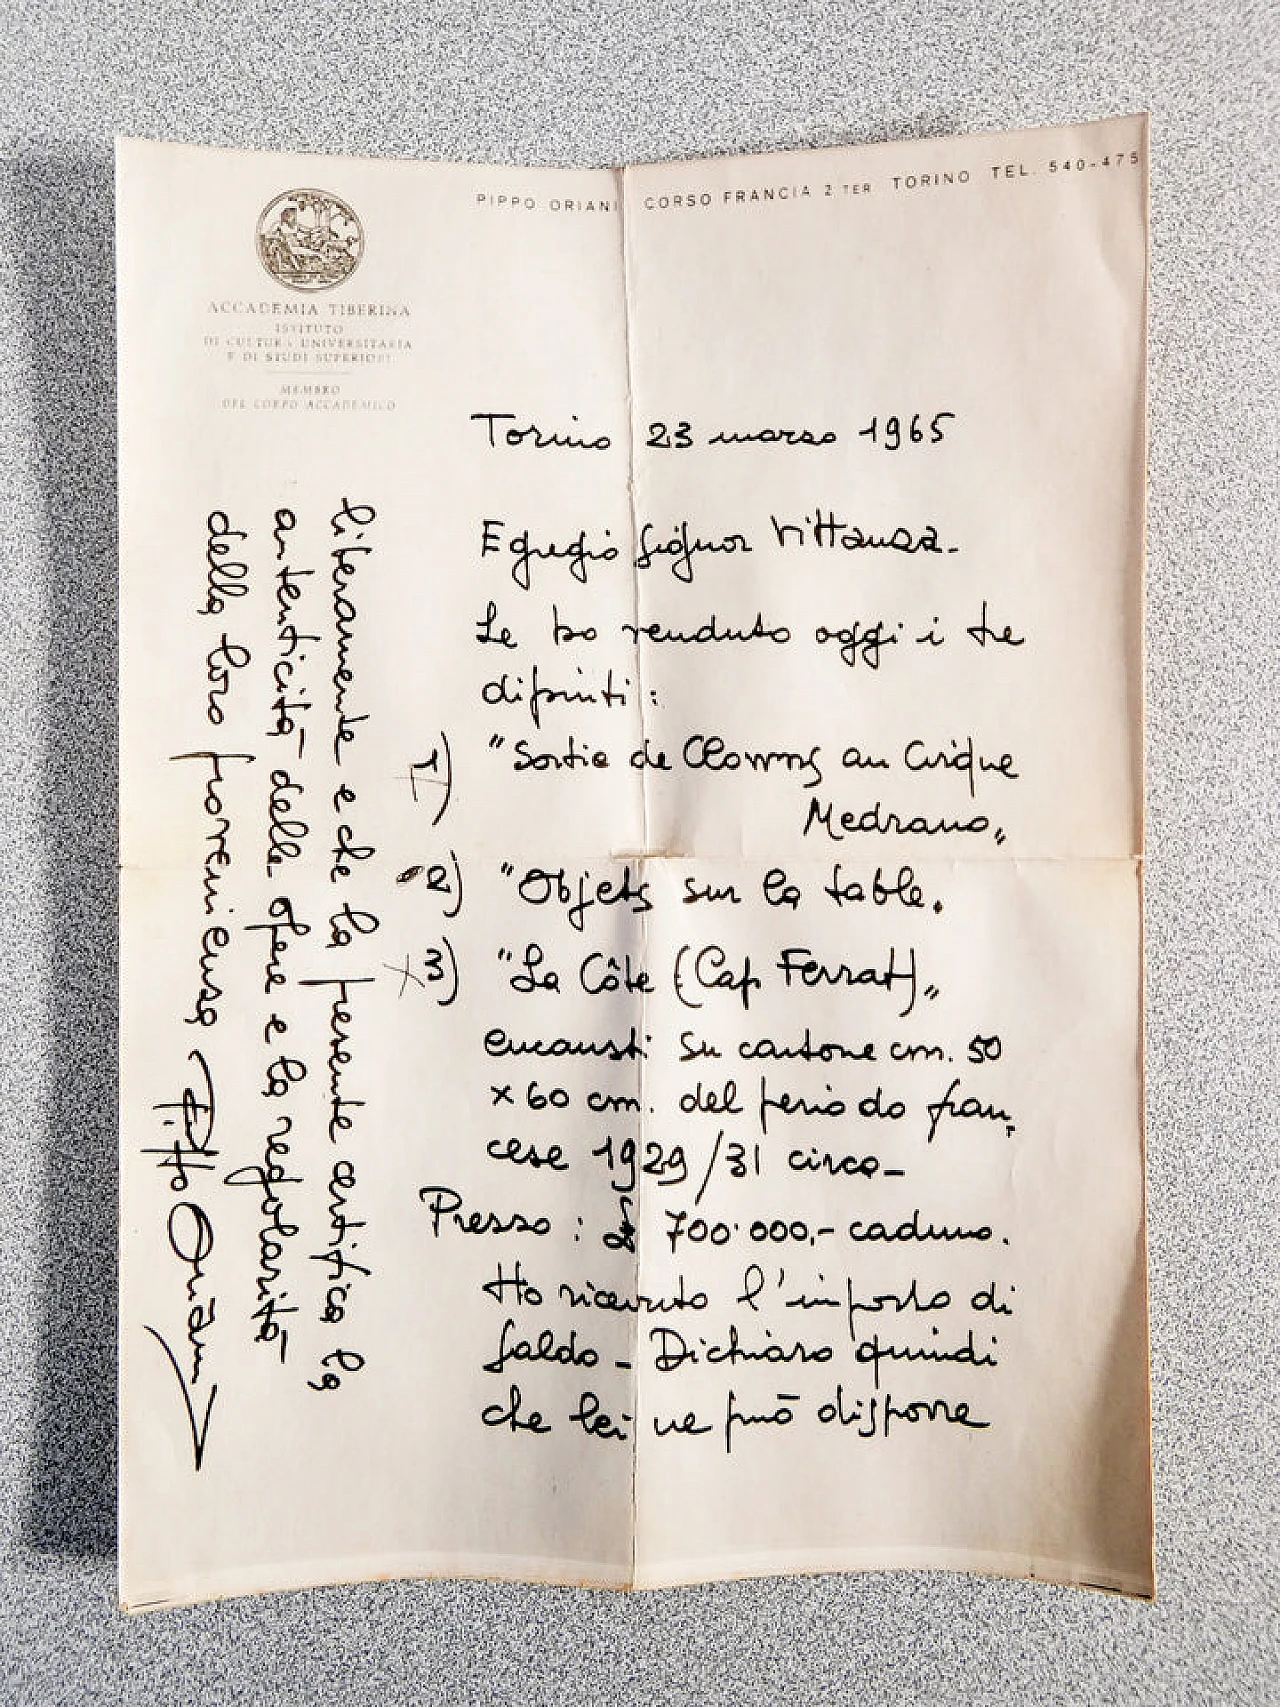 PIPPO ORIANI CORSO FRANCIA 2 TER TORINO TEL. 540-475
ACCADEMIA TIBERINA
ISTITUTO
DI CULTURA UNIVERSITARIA
E DI STUDI SUPERIORI
MEMBRO
DEL CORPO ACCADEMICO
Torino 23 marzo 1965
Egregio Signor Vittanza.
Le ho venduto oggi i tre
dipinti:
1) "Sortie de Clowns au Cirque
Medrano„
2) "Objets sur la table.
3) "La Côte (Cap Ferrat)„
encausti su cartone cm. 50
x 60 cm. del periodo fran,
cese 1929/31 circa-
Prezzo: £ 700.000,- caduno.
Ho ricevuto l'importo di
saldo - Dichiaro quindi
che lei ne può disporre
liberamente e che la presente certifica la
autenticità delle opere e la regolarità
della loro provenienza Pippo Oriani